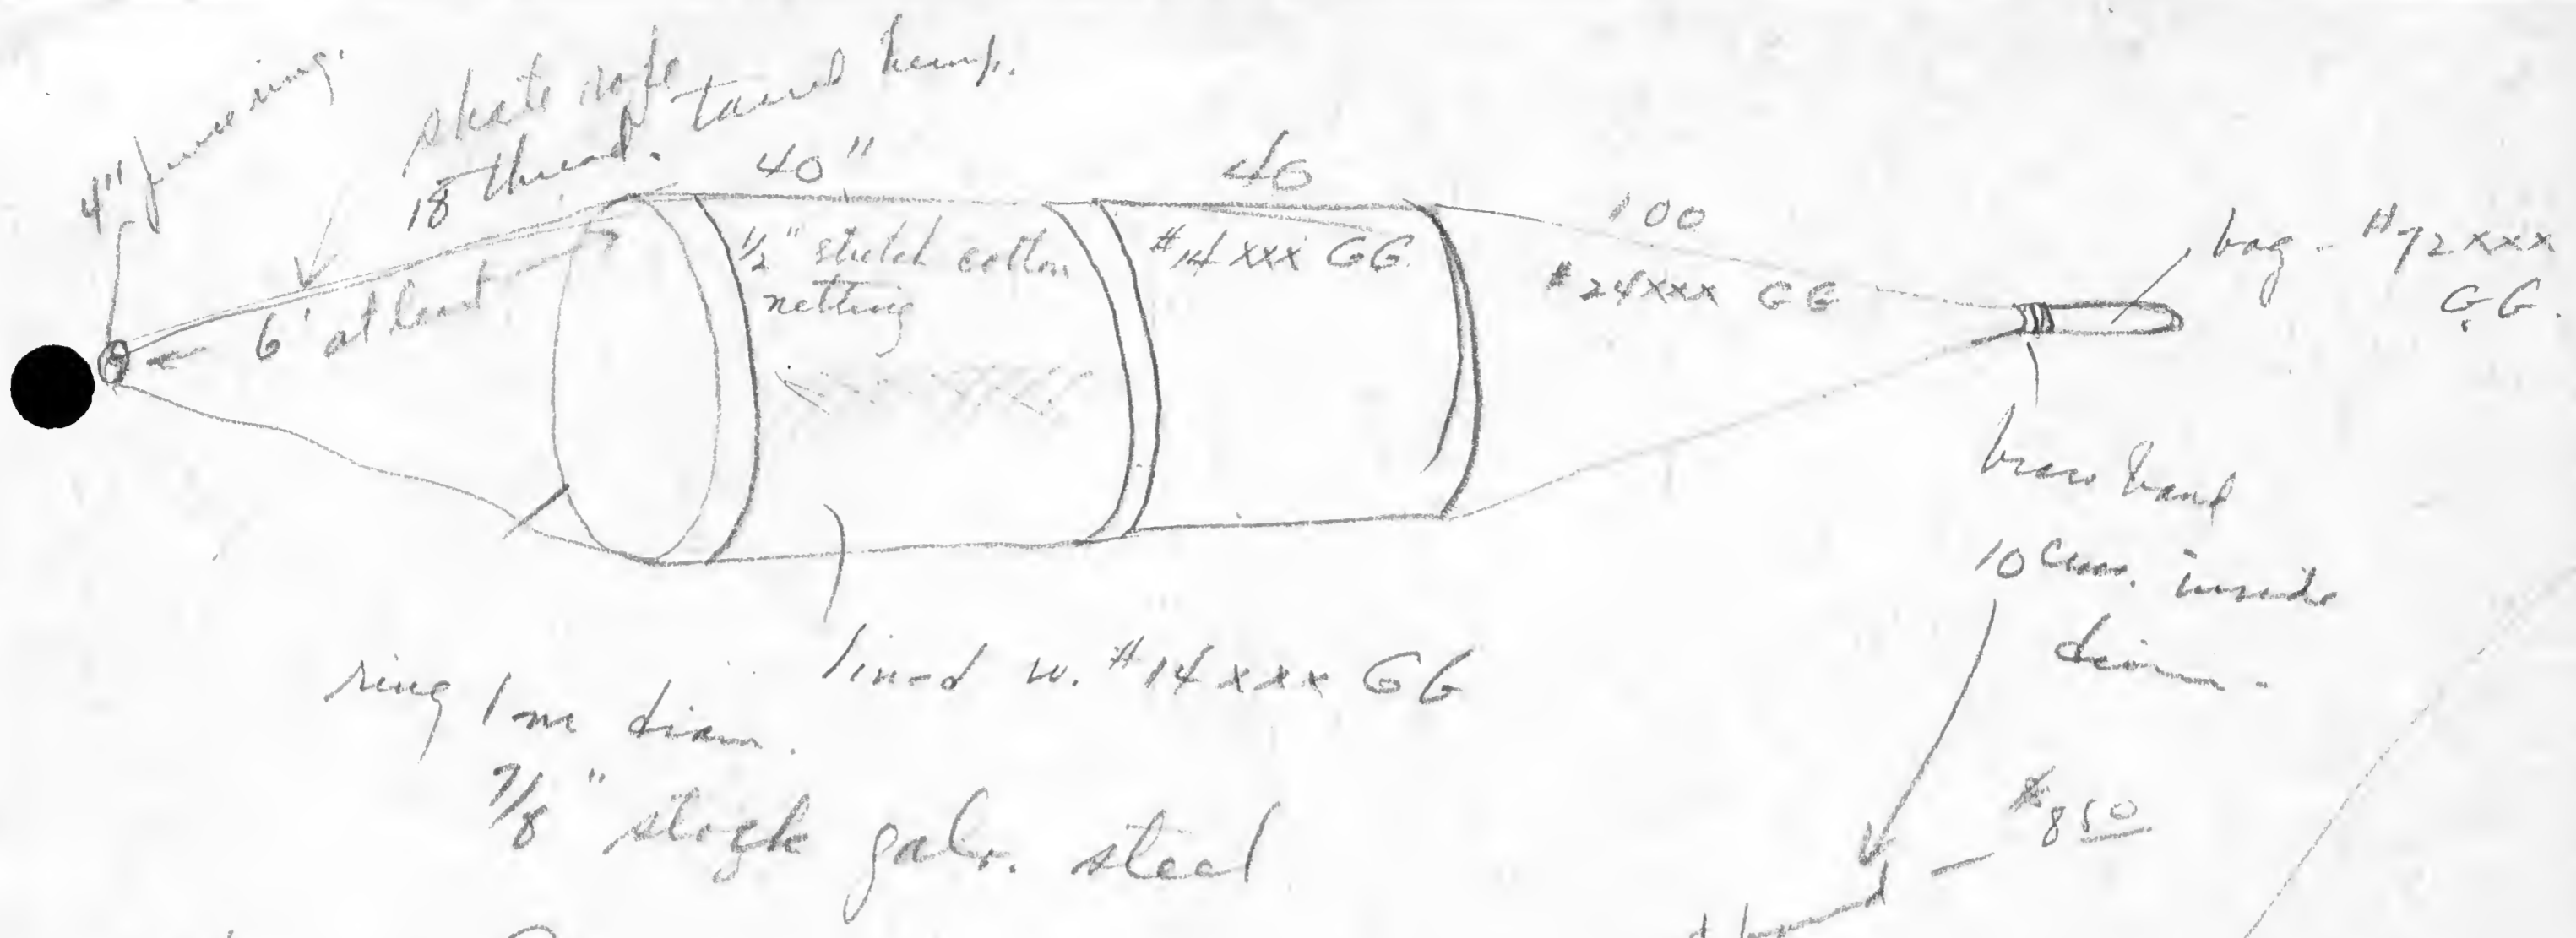 4" ring.
skate rope
18 thread. tarred hemp.
6' at least
40"
1/2" stretch cotton
netting
40
#14xxx GG
100
#24xxx GG
bag - #72xxx
G.G.
brass band
10 cm. inside
diam.
lined w. #14xxx GG
ring 1 m diam.
7/8" stock galv. steel
$8 50